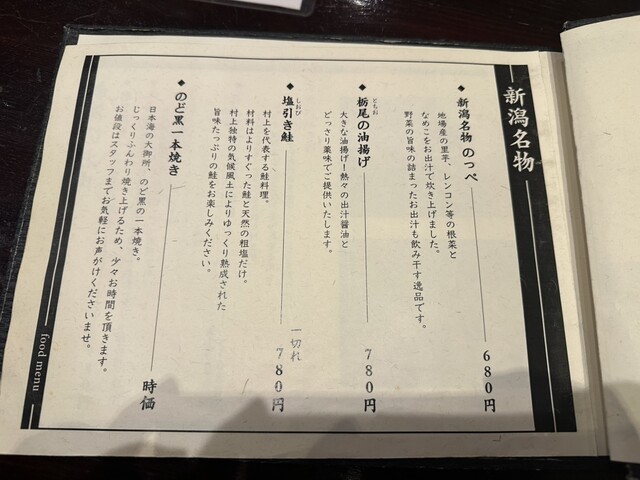 新潟名物
◆ 新潟名物 のっぺ 680円
地場産の里芋、レンコン等の根菜と
なめこをお出汁で炊き上げました。
野菜の旨味の詰まったお出汁も飲み干す逸品です。
◆ 栃尾の油揚げ 780円
とちお
大きな油揚げ!熱々の出汁醤油と
どっさり薬味でご提供いたします。
◆ 塩引き鮭 一切れ 780円
しおび
村上を代表する鮭料理。
材料はよりすぐった鮭と天然の粗塩だけ。
村上独特の気候風土によりゆっくり熟成された
旨味たっぷりの鮭をお楽しみください。
◆ のど黒一本焼き 時価
日本海の大御所、のど黒の一本焼き。
じっくりふんわり焼き上げるため、少々お時間を頂きます。
お値段はスタッフまでお気軽にお声がけくださいませ。
food menu